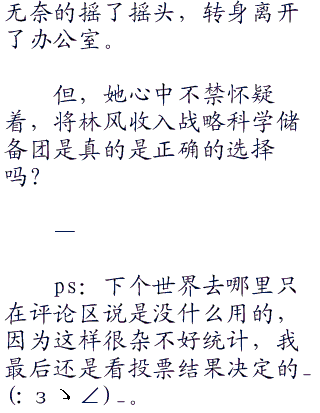 无奈的摇了摇头，转身离开
了办公室。
但，她心中不禁怀疑
着，将林风收入战略科学储
备团是真的是正确的选择
吗？
—
ps：下个世界去哪里只
在评论区说是没什么用的，
因为这样很杂不好统计，我
最后还是看投票结果决定的_
(:з丶∠)_。